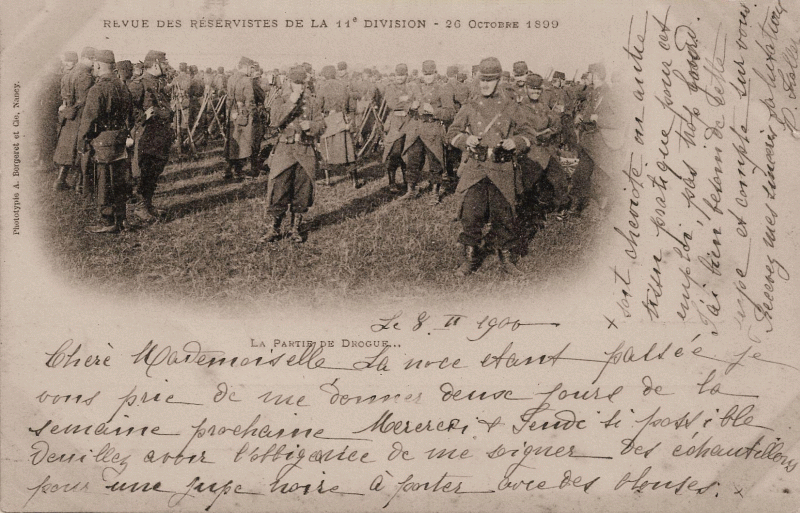 REVUE DES RÉSERVISTES DE LA 11e DIVISION - 26 OCTOBRE 1899
Phototypie A. Bergeret et Cie, Nancy.
LA PARTIE DE DROGUE...
Le 8 II 1900
Chère Mademoiselle La noce etant passée je
vous prie de me donner deux jours de la
semaine prochaine Mercredi & Jeudi si possible
Veuillez avoir l'obligance de me soigner des échantillons
pour une jupe noire à porter avec des blouses. x
x soit cheviote ou autre
tissu pratique pour cet
emploi, pas trop lourd.
J'ai bien besoin de cette
jupe et compte sur vous
Recevez mes sincères salutations